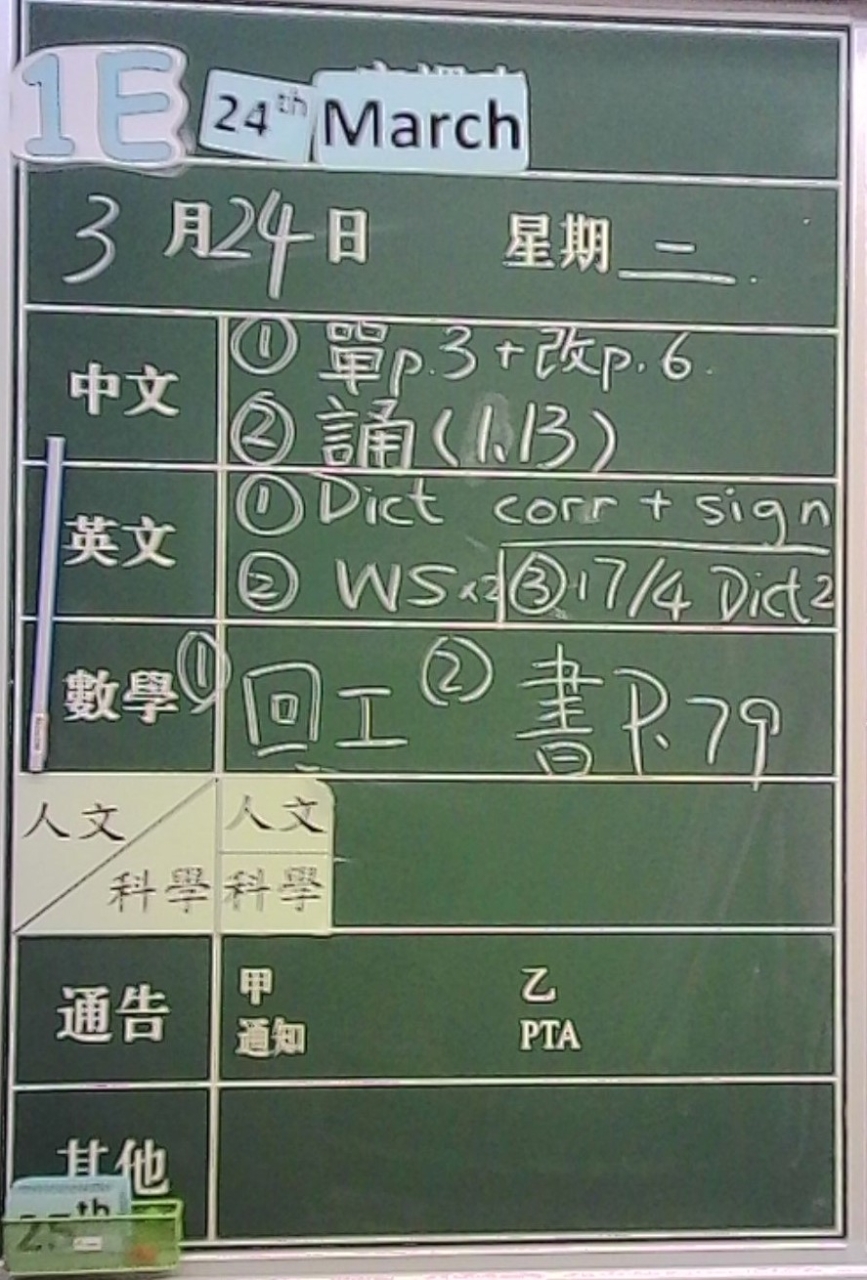 1E 24th March
3月24日 星期二
中文 ① 單p.3+改p.6
② 誦(1.13)
英文 ① Dict corr + sign
② WS x2 ③ 17/4 Dict2
數學 ① 回工 ② 書P.79
人文 人文
科學 科學
通告 甲 乙
通知 PTA
其他
25th